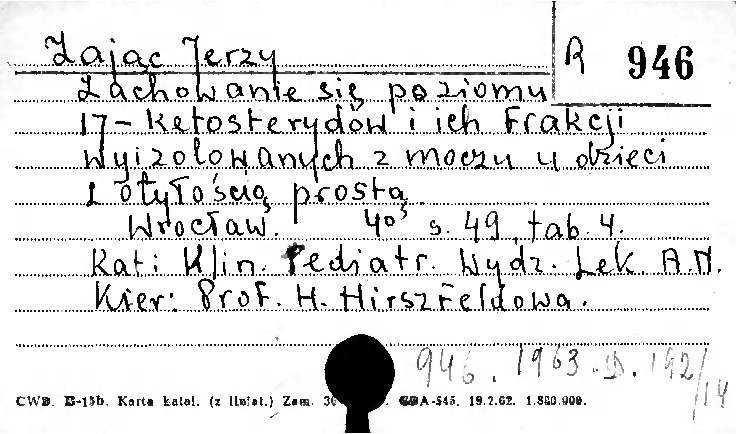 Zając Jerzy
R 946
Zachowanie się poziomu
17-Ketosterydów i ich Frakcji
wyizolowanych z moczu u dzieci
z otyłością prostą.
Wrocław. 4° s. 49, tab. 4.
Kat: Klin. Pediatr. Wydz. Lek A.M.
Kier: Prof. H. Hirszfeldowa.
946. 1963.D. 192/14
CWD. Karta katal. (z liniat.) Zam. GDA-545. 19.2.62.